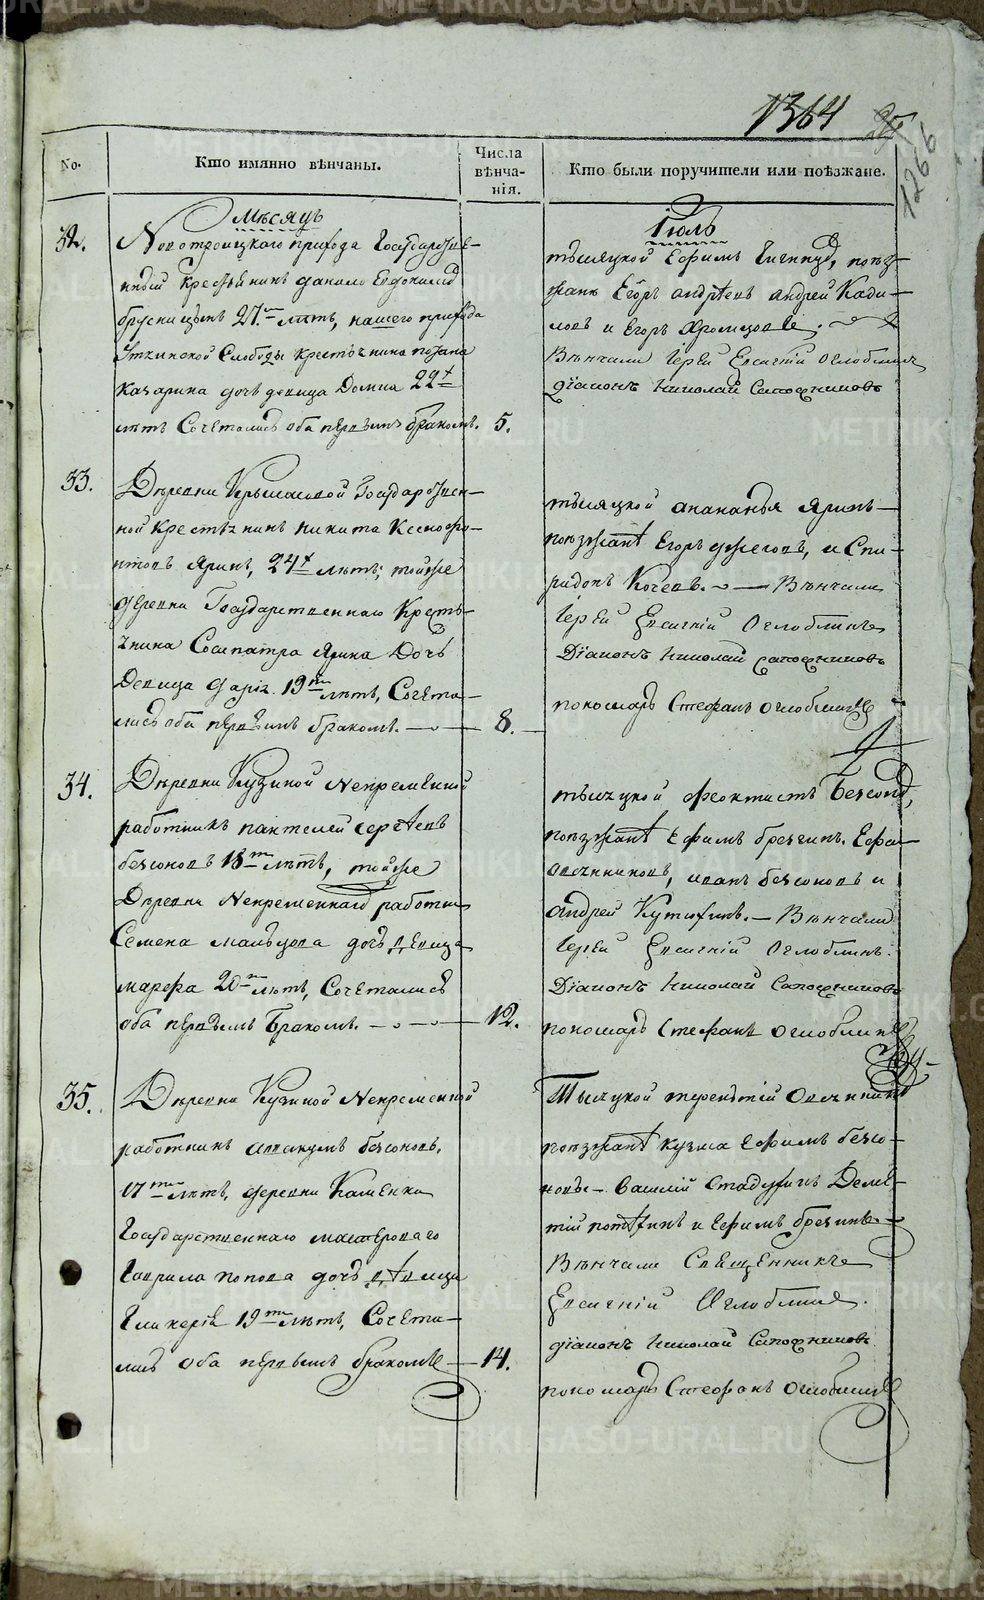 1364
1266
No.
Кто имянно вѣнчаны.
Числа
вѣнча-
нія.
Кто были поручители или поѣзжане.
Мѣсяцъ
Іюль
32.
Новотроицкаго прихода Государствен-
ный крестьянинъ Данило Евдокимовъ
Брусницынъ 27ми лѣтъ, нашего прихода
Уткинской Слободы крестьянина
Качарина дочь девица Домна 22х
лѣтъ Сочетались оба первымъ бракомъ.
5.
тысяцкой Ефимъ поѣз-
жане Егоръ Андрѣевъ Андрей Кади-
ловъ и Егоръ
Вѣнчали Іерей Евсигній Оглоблинъ
Діаконъ Николай Сапожниковъ
33.
Деревни Государствен-
ной крестьянинъ Никита Ксенофо-
нтовъ Яринъ, 24х лѣтъ, тойже
деревни Государственнаго кресть-
янина Сосипатра Ярина Дочь
Девица Дарія 19ти лѣтъ, Сочета-
лись оба первымъ бракомъ.
8.
тысяцкой Ананья Яринъ
поѣзжанѣ Егоръ и Спи-
ридонъ Кочевъ. Вѣнчали
Іерей Евсигній Оглоблинъ
Діаконъ Николай Сапожниковъ
пономарь Стефанъ Оглоблинъ
34.
Деревни Кузиной Непременной
работникъ Пантелей Сергѣевъ
Безсоновъ 18ти лѣтъ, тойже
Деревни Непременнаго работни
Семена Мальцова дочь девица
Марфа 20ти лѣтъ, Сочетались
оба первымъ бракомъ.
12.
тысяцкой Феоктистъ Безсоновъ,
поѣзжанѣ Ефимъ Брезгинъ. Ефи
Овчинниковъ, Иванъ Безсоновъ и
Андрей Вѣнчали
Іерей Евсигній Оглоблинъ.
Діаконъ Николай Сапожниковъ
пономарь Стефанъ Оглоблинъ
35.
Деревни Кузиной Непременной
работникъ Аввакумъ Безсоновъ,
17ти лѣтъ, деревни Каменки
Государственнаго мастероваго
Гаврила Попова дочь дѣвица
Гликерія 19ти лѣтъ, Сочета-
лись оба первымъ бракомъ
14.
Тысяцкой Терентій Овчинник
поѣзжанѣ Кузма Ефимъ Безсо-
новы Василій Стадухинъ Демен-
тій Потѣхинъ и Ефимъ Брезгинъ.
Вѣнчали Священникъ
Евсигній Оглоблинъ.
Діаконъ Николай Сапожниковъ
пономарь Стефанъ Оглоблинъ
METRIKI.GASO-URAL.RU